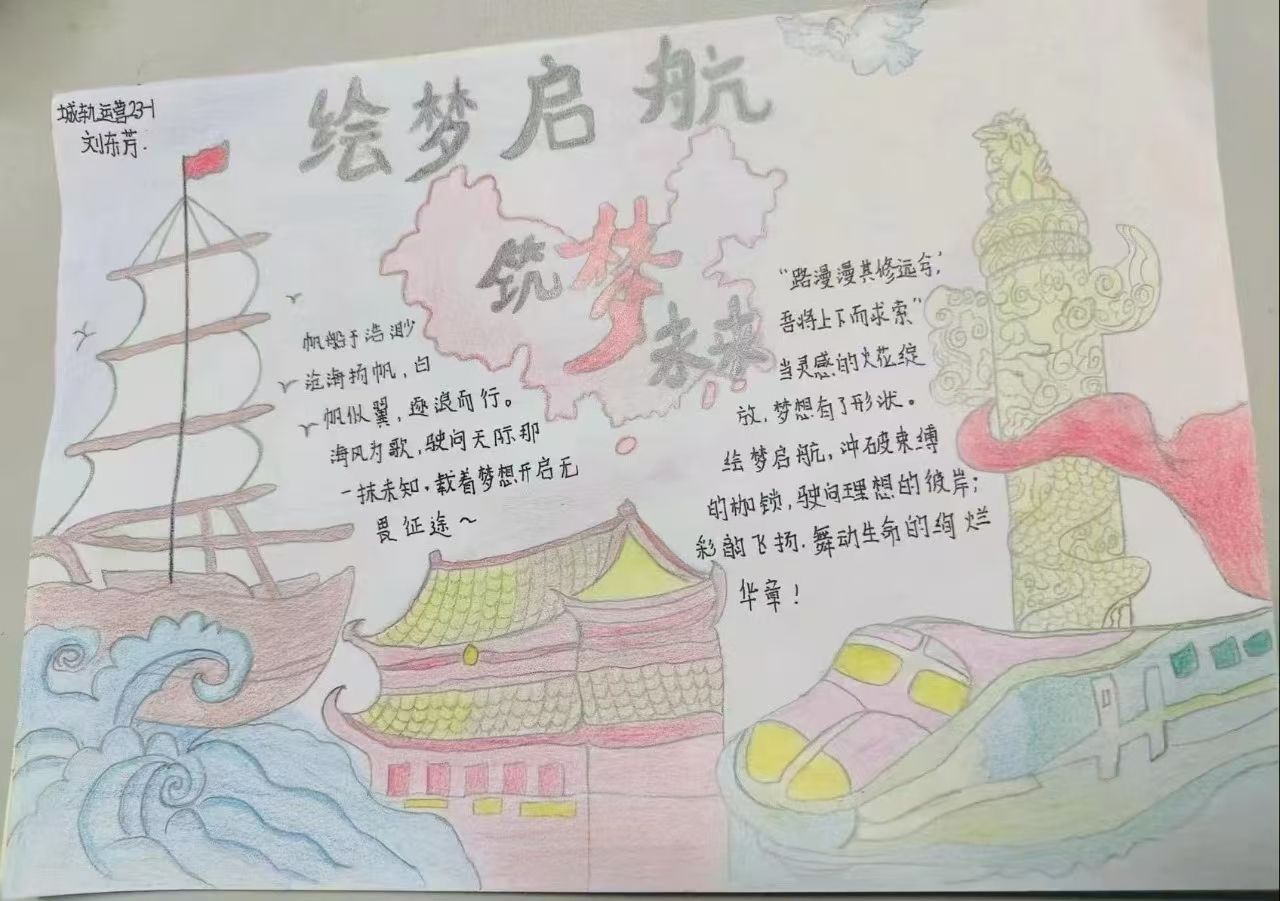 城轨运营23-1
刘东芳.
绘梦启航
筑梦
未来
帆船于浩渺
沧海扬帆,白
帆似翼,逐浪而行。
海风为歌,驶向天际那
一抹未知.载着梦想开启无
畏征途~
“路漫漫其修远兮,
吾将上下而求索”
当灵感的火花绽
放,梦想有了形状。
绘梦启航,冲破束缚
的枷锁,驶向理想的彼岸;
彩韵飞扬.舞动生命的绚烂
华章!